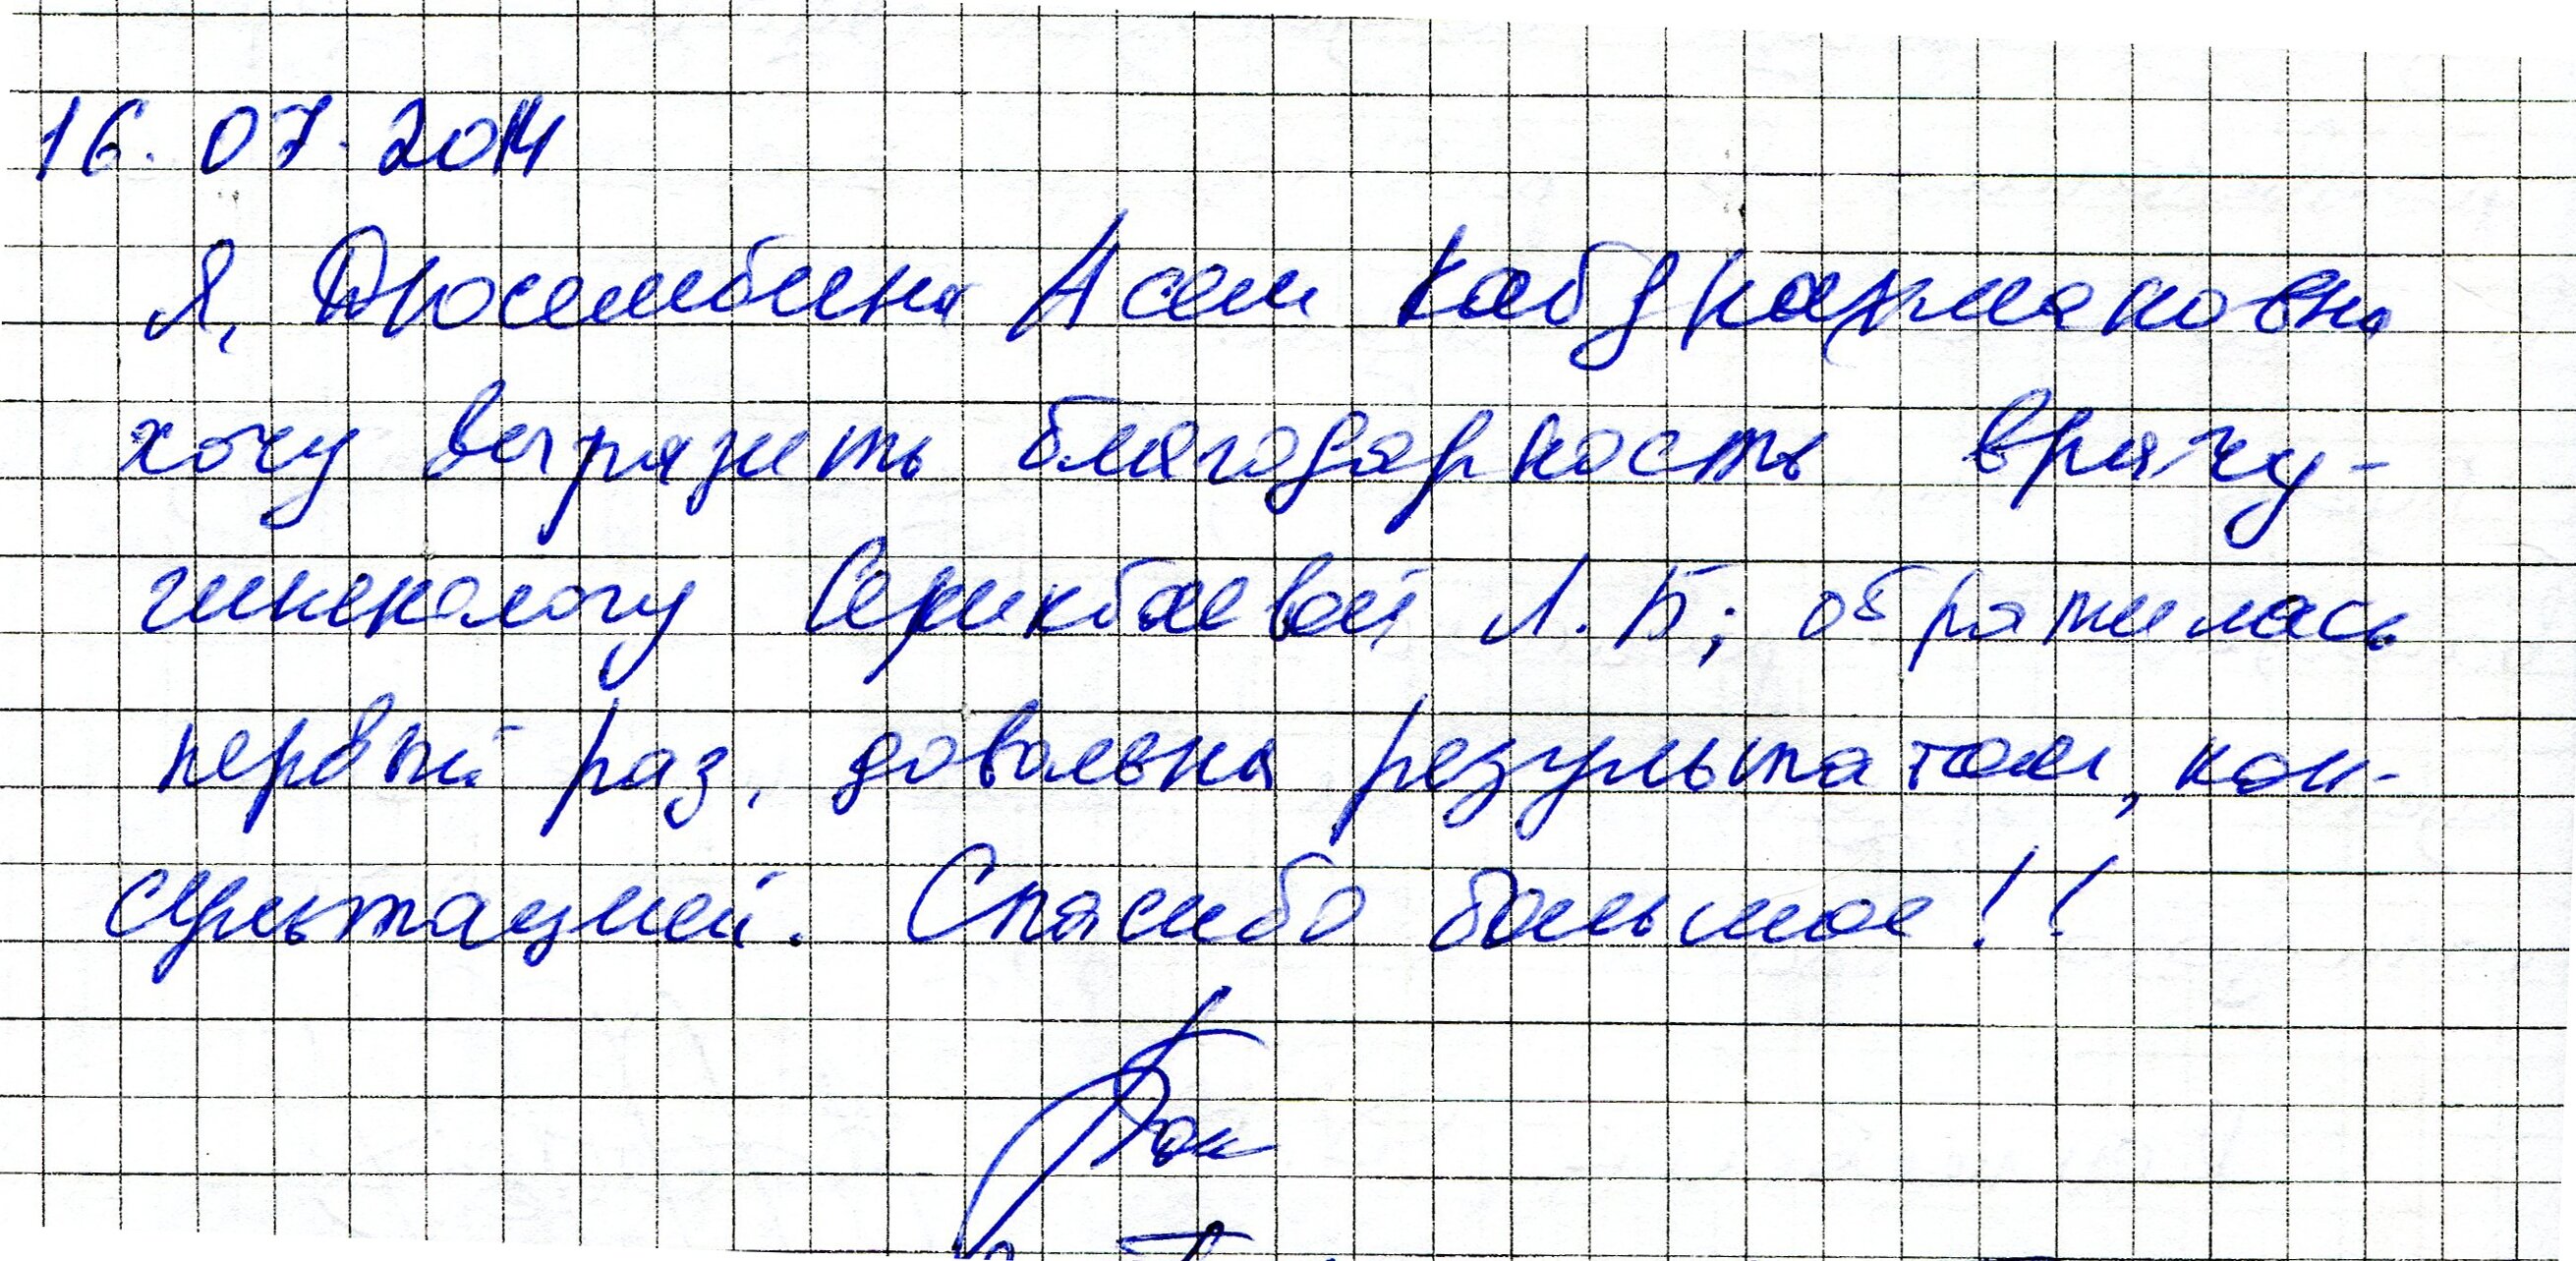 16.07.2014
Я, Дюсембина Асем Кабдкармановна
хочу выразить благодарность врачу-
гинекологу Серикбаевой Л.Б; обратилась
первый раз, довольна результатом, кон-
сультацией. Спасибо большое!!